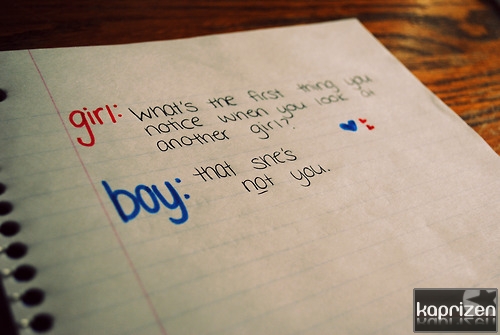 girl: what's the first thing you
notice when you look at
another girl?
boy: that she's
not you.
kaprizen